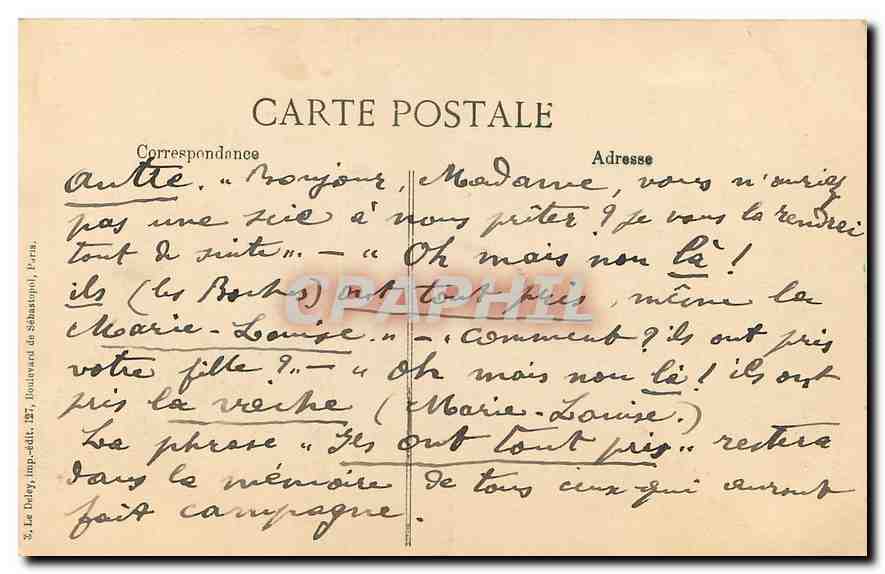 CARTE POSTALE
Correspondance
Adresse
autre. „ Bonjour, Madame, vous n'auriez
pas une scie à nous prêter ? je vous la rendrai
tout de suite „. — „ Oh mais non là !
ils (les Boches) ont tout pris, même la
Marie-Louise. „ — „ Comment ? ils ont pris
votre fille ? „ — „ Oh mais non là ! ils ont
pris la vache (Marie-Louise.)
La phrase „ Ils ont tout pris „ restera
dans la mémoire de tous ceux qui auront
fait campagne.
3, Le Deley, imp.-édit. 127, Boulevard de Sébastopol, Paris.
CPAPHIL